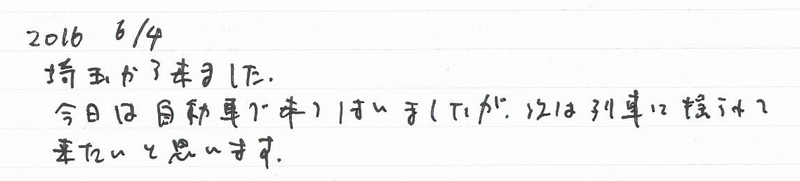 2016 6/4
埼玉から来ました.
今日は自動車で来てしまいましたが、次は列車に揺られて
来たいと思います.